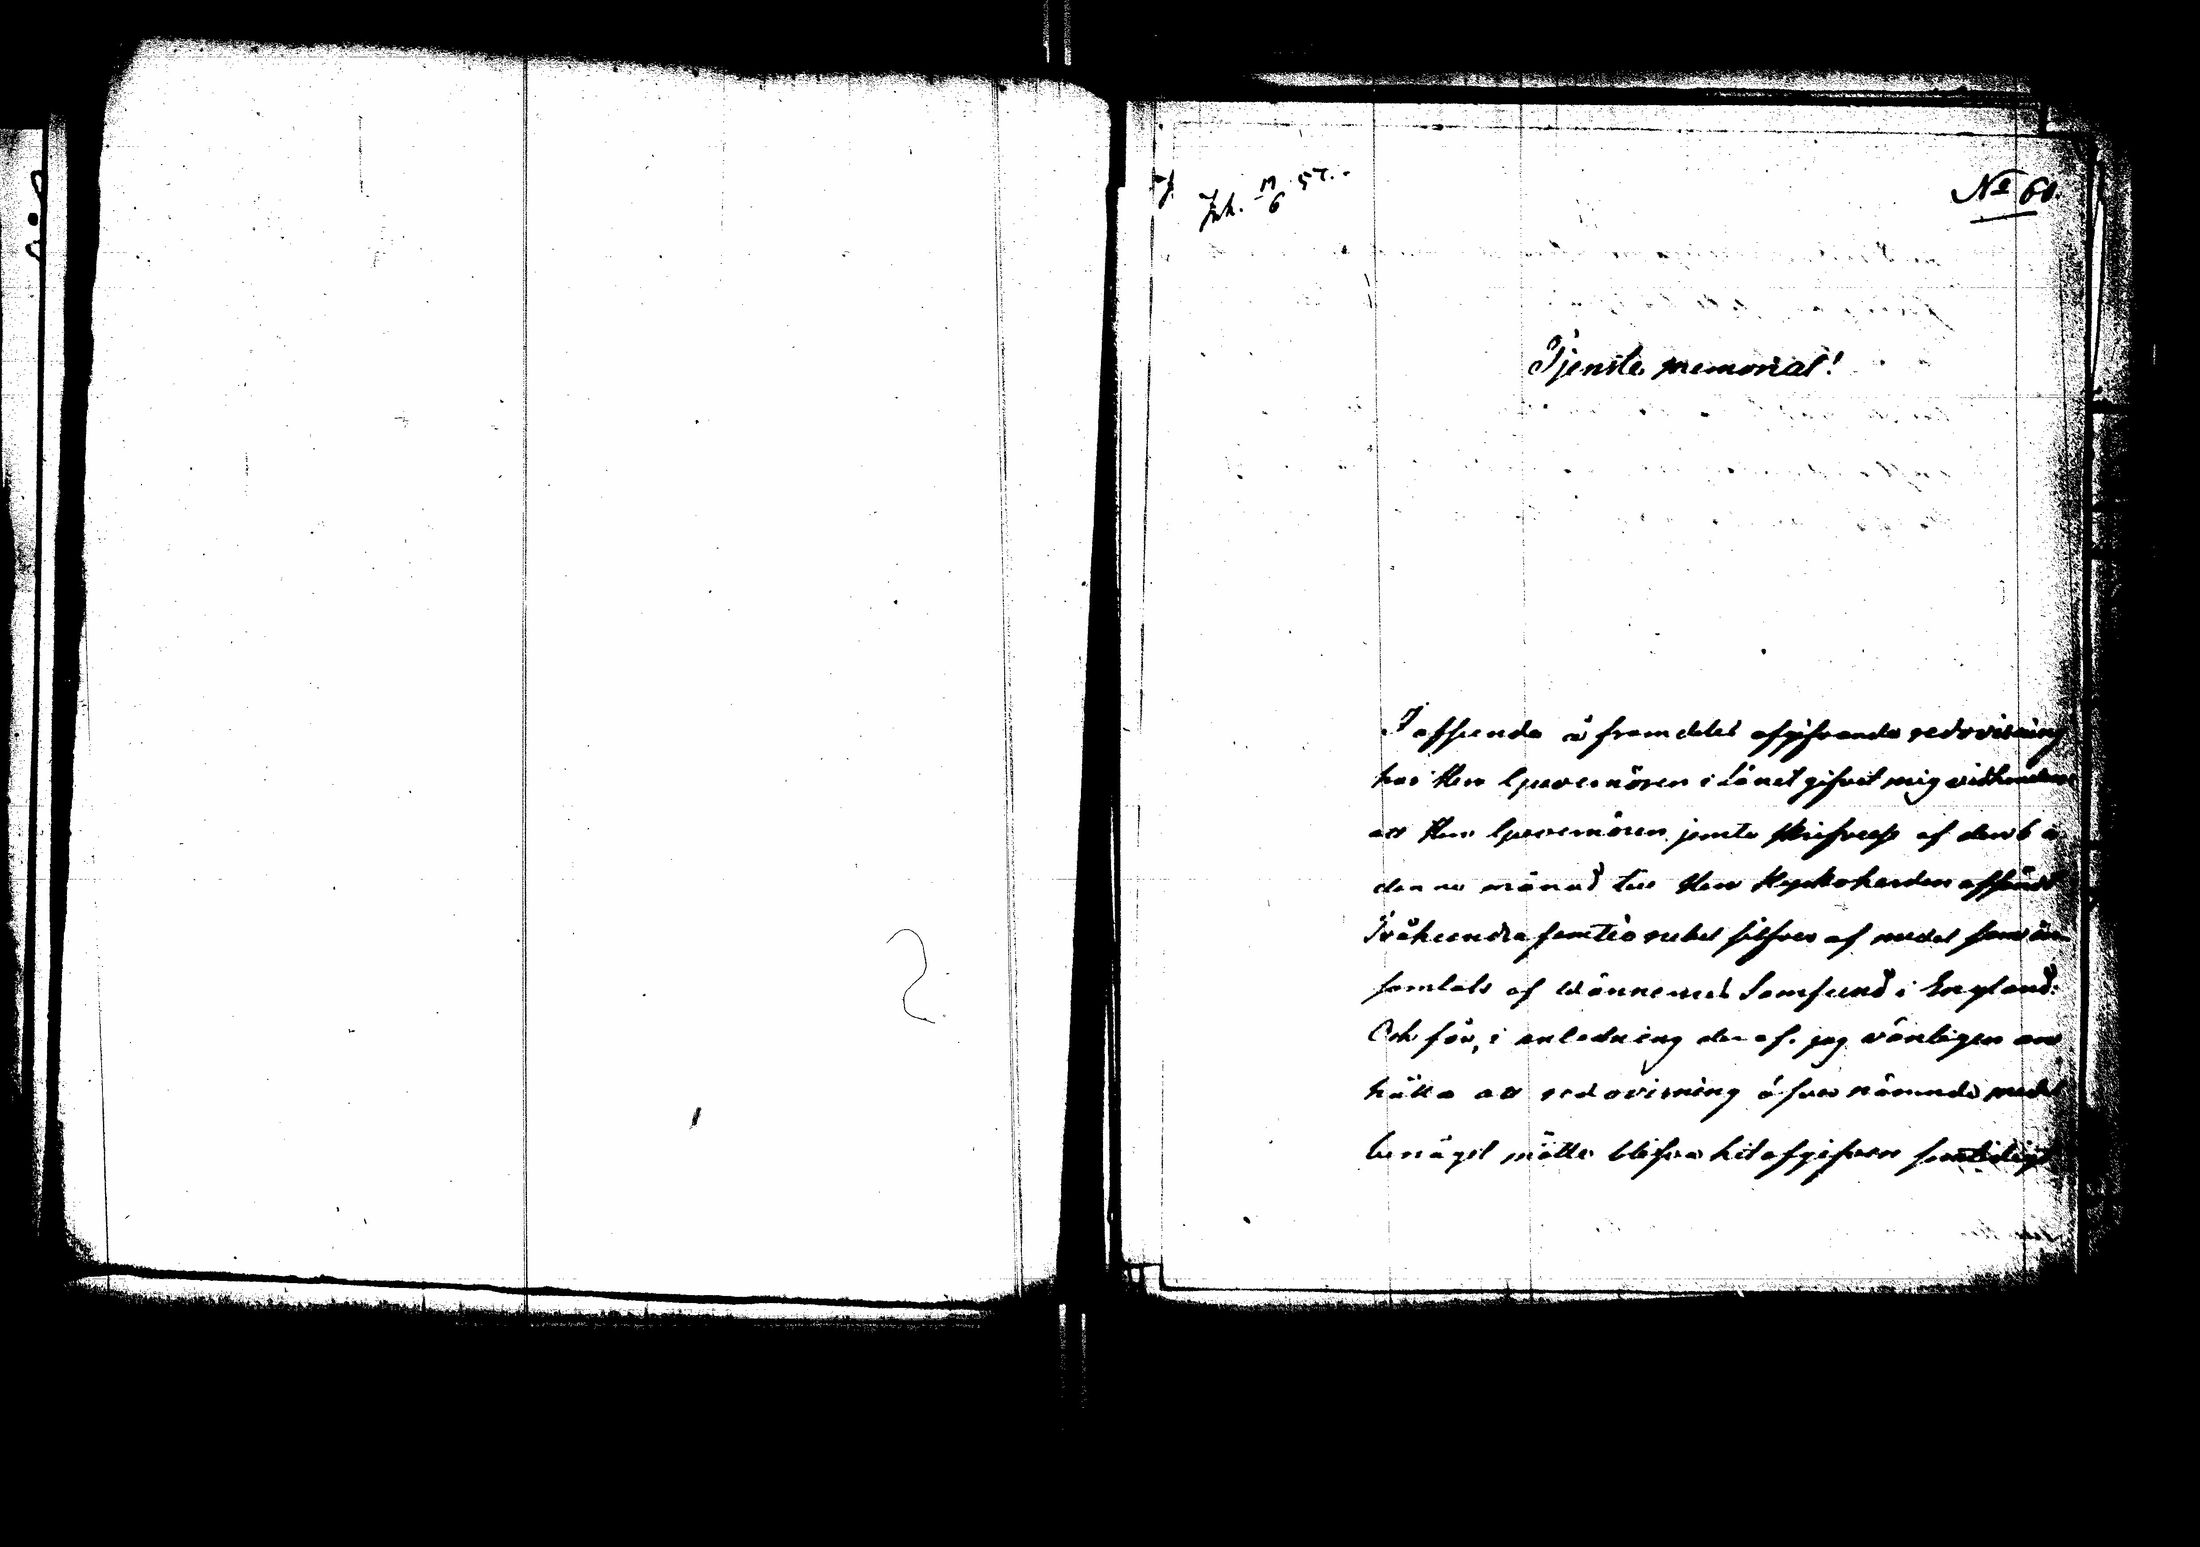 Ink. 17/6 57.
No 60.
Tjenste memorial!
I afseende å framdeles afgifvande redovisning
har Herr Guvernören i Länet gifvit mig vidhanden
att Herr Guvernören jemte skrifvelse af den 6 i
denne månad till Herr Kyrkoherden afsändt
Tvåhundrafemtio rubel silfver af medel som in-
samlats af Wännernes Samfund i England.
Och får, i anledning deraf, jag vänligen an-
hålla att redovisning öfver nämnde medel
benäget måtte blifva hit afgifven samtidigt